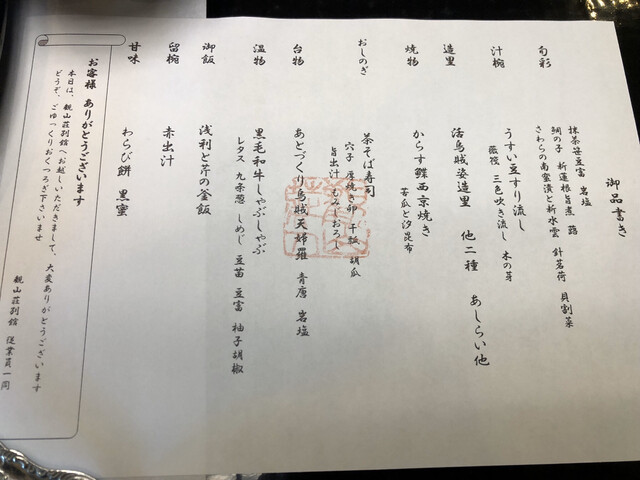 御品書き
旬彩
抹茶笹豆富 岩塩
鯛の子 新蓮根旨煮 蕗
さわらの南蛮漬と新水雲 針茗荷 貝割菜
汁椀
うすい豆すり流し
薇筏 三色吹き流し 木の芽
造里
活烏賊姿造里 他二種 あしらい他
焼物
からす鰈西京焼き
苦瓜と汐昆布
おしのぎ
茶そば寿司
穴子 厚焼き卵 干瓢 胡瓜
旨出汁 もみじおろし
台物
あとづくり烏賊天婦羅 青唐 岩塩
温物
黒毛和牛しゃぶしゃぶ
レタス 九条葱 しめじ 豆苗 豆富 柚子胡椒
御飯
浅利と芹の釜飯
留椀
赤出汁
甘味
わらび餅 黒蜜
お客様 ありがとうございます
本日は、観山荘別館へお越しいただきまして、大変ありがとうございます
どうぞ、ごゆっくりおくつろぎ下さいませ
観山荘別館 従業員一同